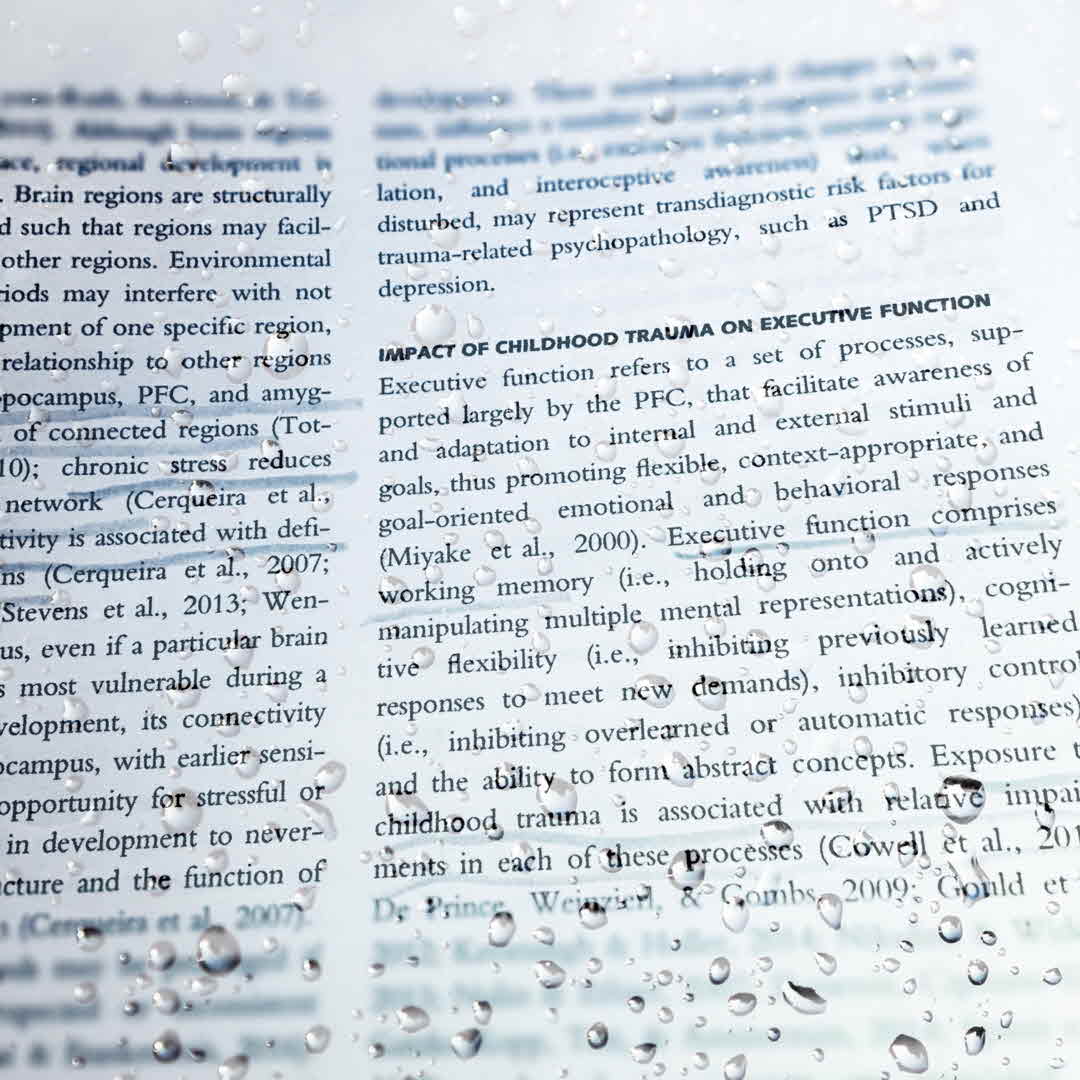 ace, regional development is
. Brain regions are structurally
d such that regions may facil-
other regions. Environmental
riods may interfere with not
pment of one specific region,
relationship to other regions
pocampus, PFC, and amyg-
of connected regions (Tot-
10); chronic stress reduces
network (Cerqueira et al.,
tivity is associated with defi-
ns (Cerqueira et al., 2007;
Stevens et al., 2013; Wen-
us, even if a particular brain
s most vulnerable during a
velopment, its connectivity
ocampus, with earlier sensi-
opportunity for stressful or
in development to never-
cture and the function of
(Cerqueira et al., 2007).
tional processes (i.e., executive
lation, and interoceptive awareness) that, when
disturbed, may represent transdiagnostic risk factors for
trauma-related psychopathology, such as PTSD and
depression.
IMPACT OF CHILDHOOD TRAUMA ON EXECUTIVE FUNCTION
Executive function refers to a set of processes, sup-
ported largely by the PFC, that facilitate awareness of
and adaptation to internal and external stimuli and
goals, thus promoting flexible, context-appropriate, and
goal-oriented emotional and behavioral responses
(Miyake et al., 2000). Executive function comprises
working memory (i.e., holding onto and actively
manipulating multiple mental representations), cogni-
tive flexibility (i.e., inhibiting previously learned
responses to meet new demands), inhibitory control
(i.e., inhibiting overlearned or automatic responses)
and the ability to form abstract concepts. Exposure t
childhood trauma is associated with relative impai
ments in each of these processes (Cowell et al., 201
De Prince, Weinzierl, & Combs, 2009; Gould et